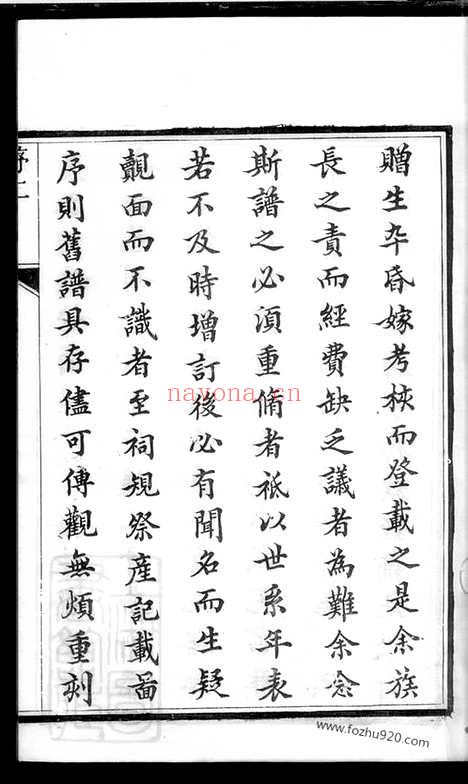 贈生卒昏嫁考核而登載之是余族
長之責而經費缺乏議者為難余念
斯譜之必須重脩者祗以世系年表
若不及時增訂後必有聞名而生疑
覿面而不識者至祠規祭產記載啚
序則舊譜具存儘可傳觀無煩重刻
序二
nayona.cn
www.fozhu920.com